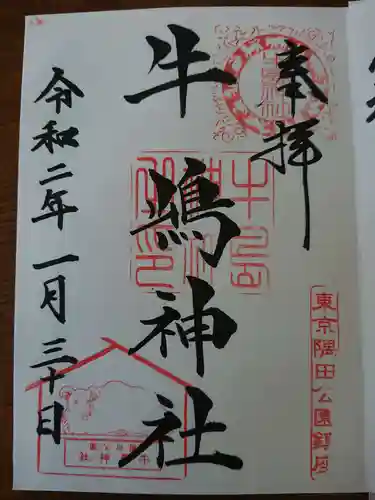 奉拝
牛嶋神社
令和二年一月三十日
東京隅田公園鎮座